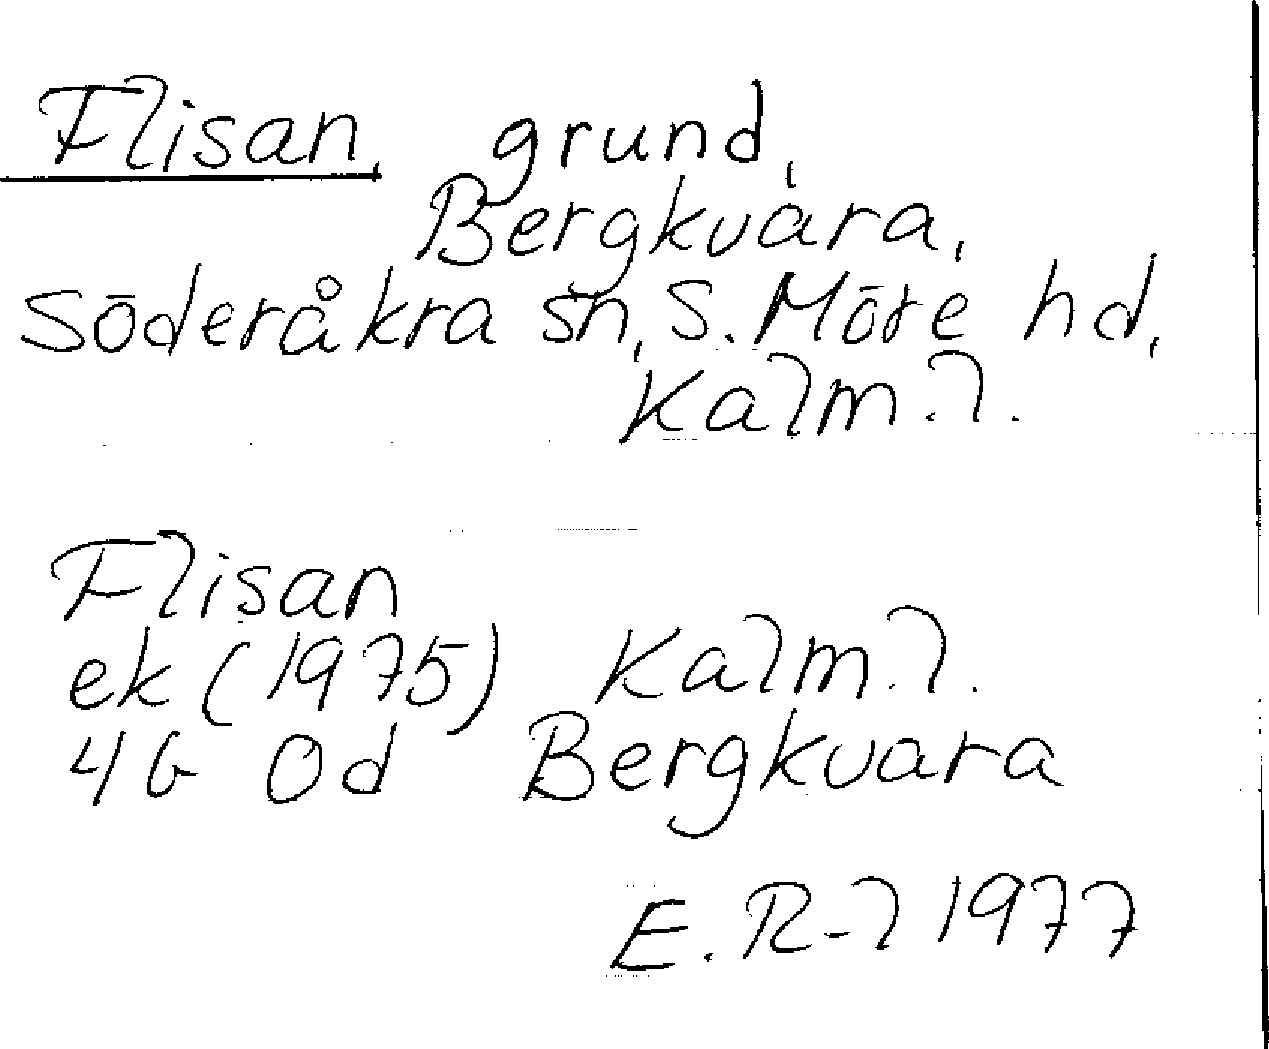 Flisan, grund,
Bergkvara,
Söderåkra sn, S. Möre hd,
Kalm.l.
Flisan
ek (1975) Kalm.l.
4G 0d Bergkvara
E.R-l 1977